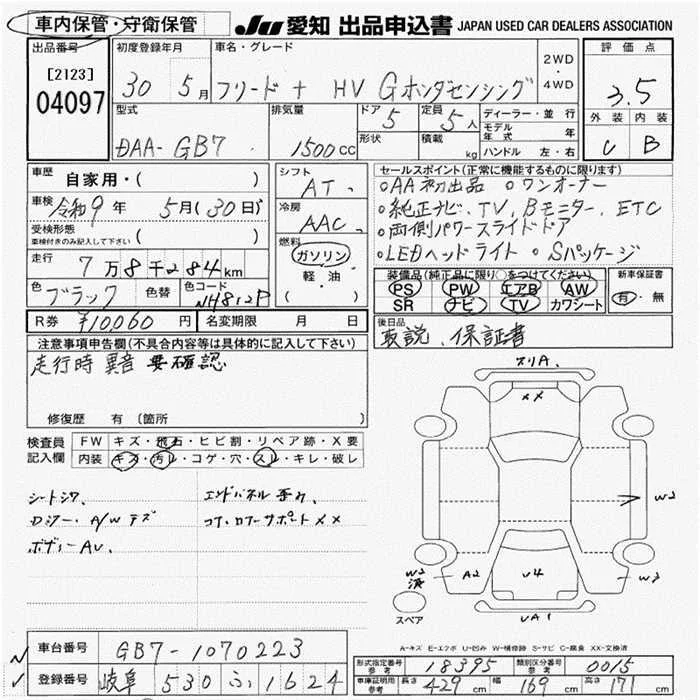 車内保管・守衛保管 JU 愛知 出品申込書 JAPAN USED CAR DEALERS ASSOCIATION
出品番号 初度登録年月 車名・グレード 2WD・4WD 評価点
[2123] 04097 30 5月 フリード + HV Gホンダセンシング 3.5
型式 排気量 ドア 5 定員 5人 ディーラー・並行 外装 内装
DAA-GB7 1500cc 形状 積載 kg モデル年式 年 C B
ハンドル 左・右
車歴 自家用・( ) シフト AT セールスポイント(正常に機能するものに限ります)
車検 令和9年 5月(30日) 冷房 AAC 。AA初出品 。ワンオーナー
受検形態 車検付きのみ記入して下さい ( ) 。純正ナビ、TV、Bモニター、ETC
走行 7万8千284km 燃料 ガソリン・軽・油 。両側パワースライドドア
。LEDヘッドライト 。Sパッケージ
色 ブラック 色替 色コード NH812P 装備品(純正品に限り○をつけてください) 新車保証書
PS PW エアB AW 有・無
SR ナビ TV カワシート
R券 ¥10,060円 名変期限 月 日 後日品
取説、保証書
注意事項申告欄(不具合内容等は具体的に記入して下さい)
走行時 異音 要確認
修復歴 有 〔箇所 〕
検査員記入欄 FW キズ・飛石・ヒビ割・リペア跡・X要
内装 キズ・汚レ・コゲ・穴・スレ・キレ・破レ
シートシワ、 エンドパネル歪み、
ロジー・A/Wキズ コア、ロアーサポートXX
ボディーAU、
スリA、
XX
W2
W2済 A2 U4 W3
スペア UA1
A-キズ E-エクボ U-凹み W-補修跡 S-サビ C-腐食 XX-交換済
車台番号 GB7-1070223
登録番号 岐阜 530 ふ 1624
形式指定番号 参考 18395 類別区分番号 参考 0015
車庫証明用 参考 長さ 429cm 幅 169cm 高さ 171cm